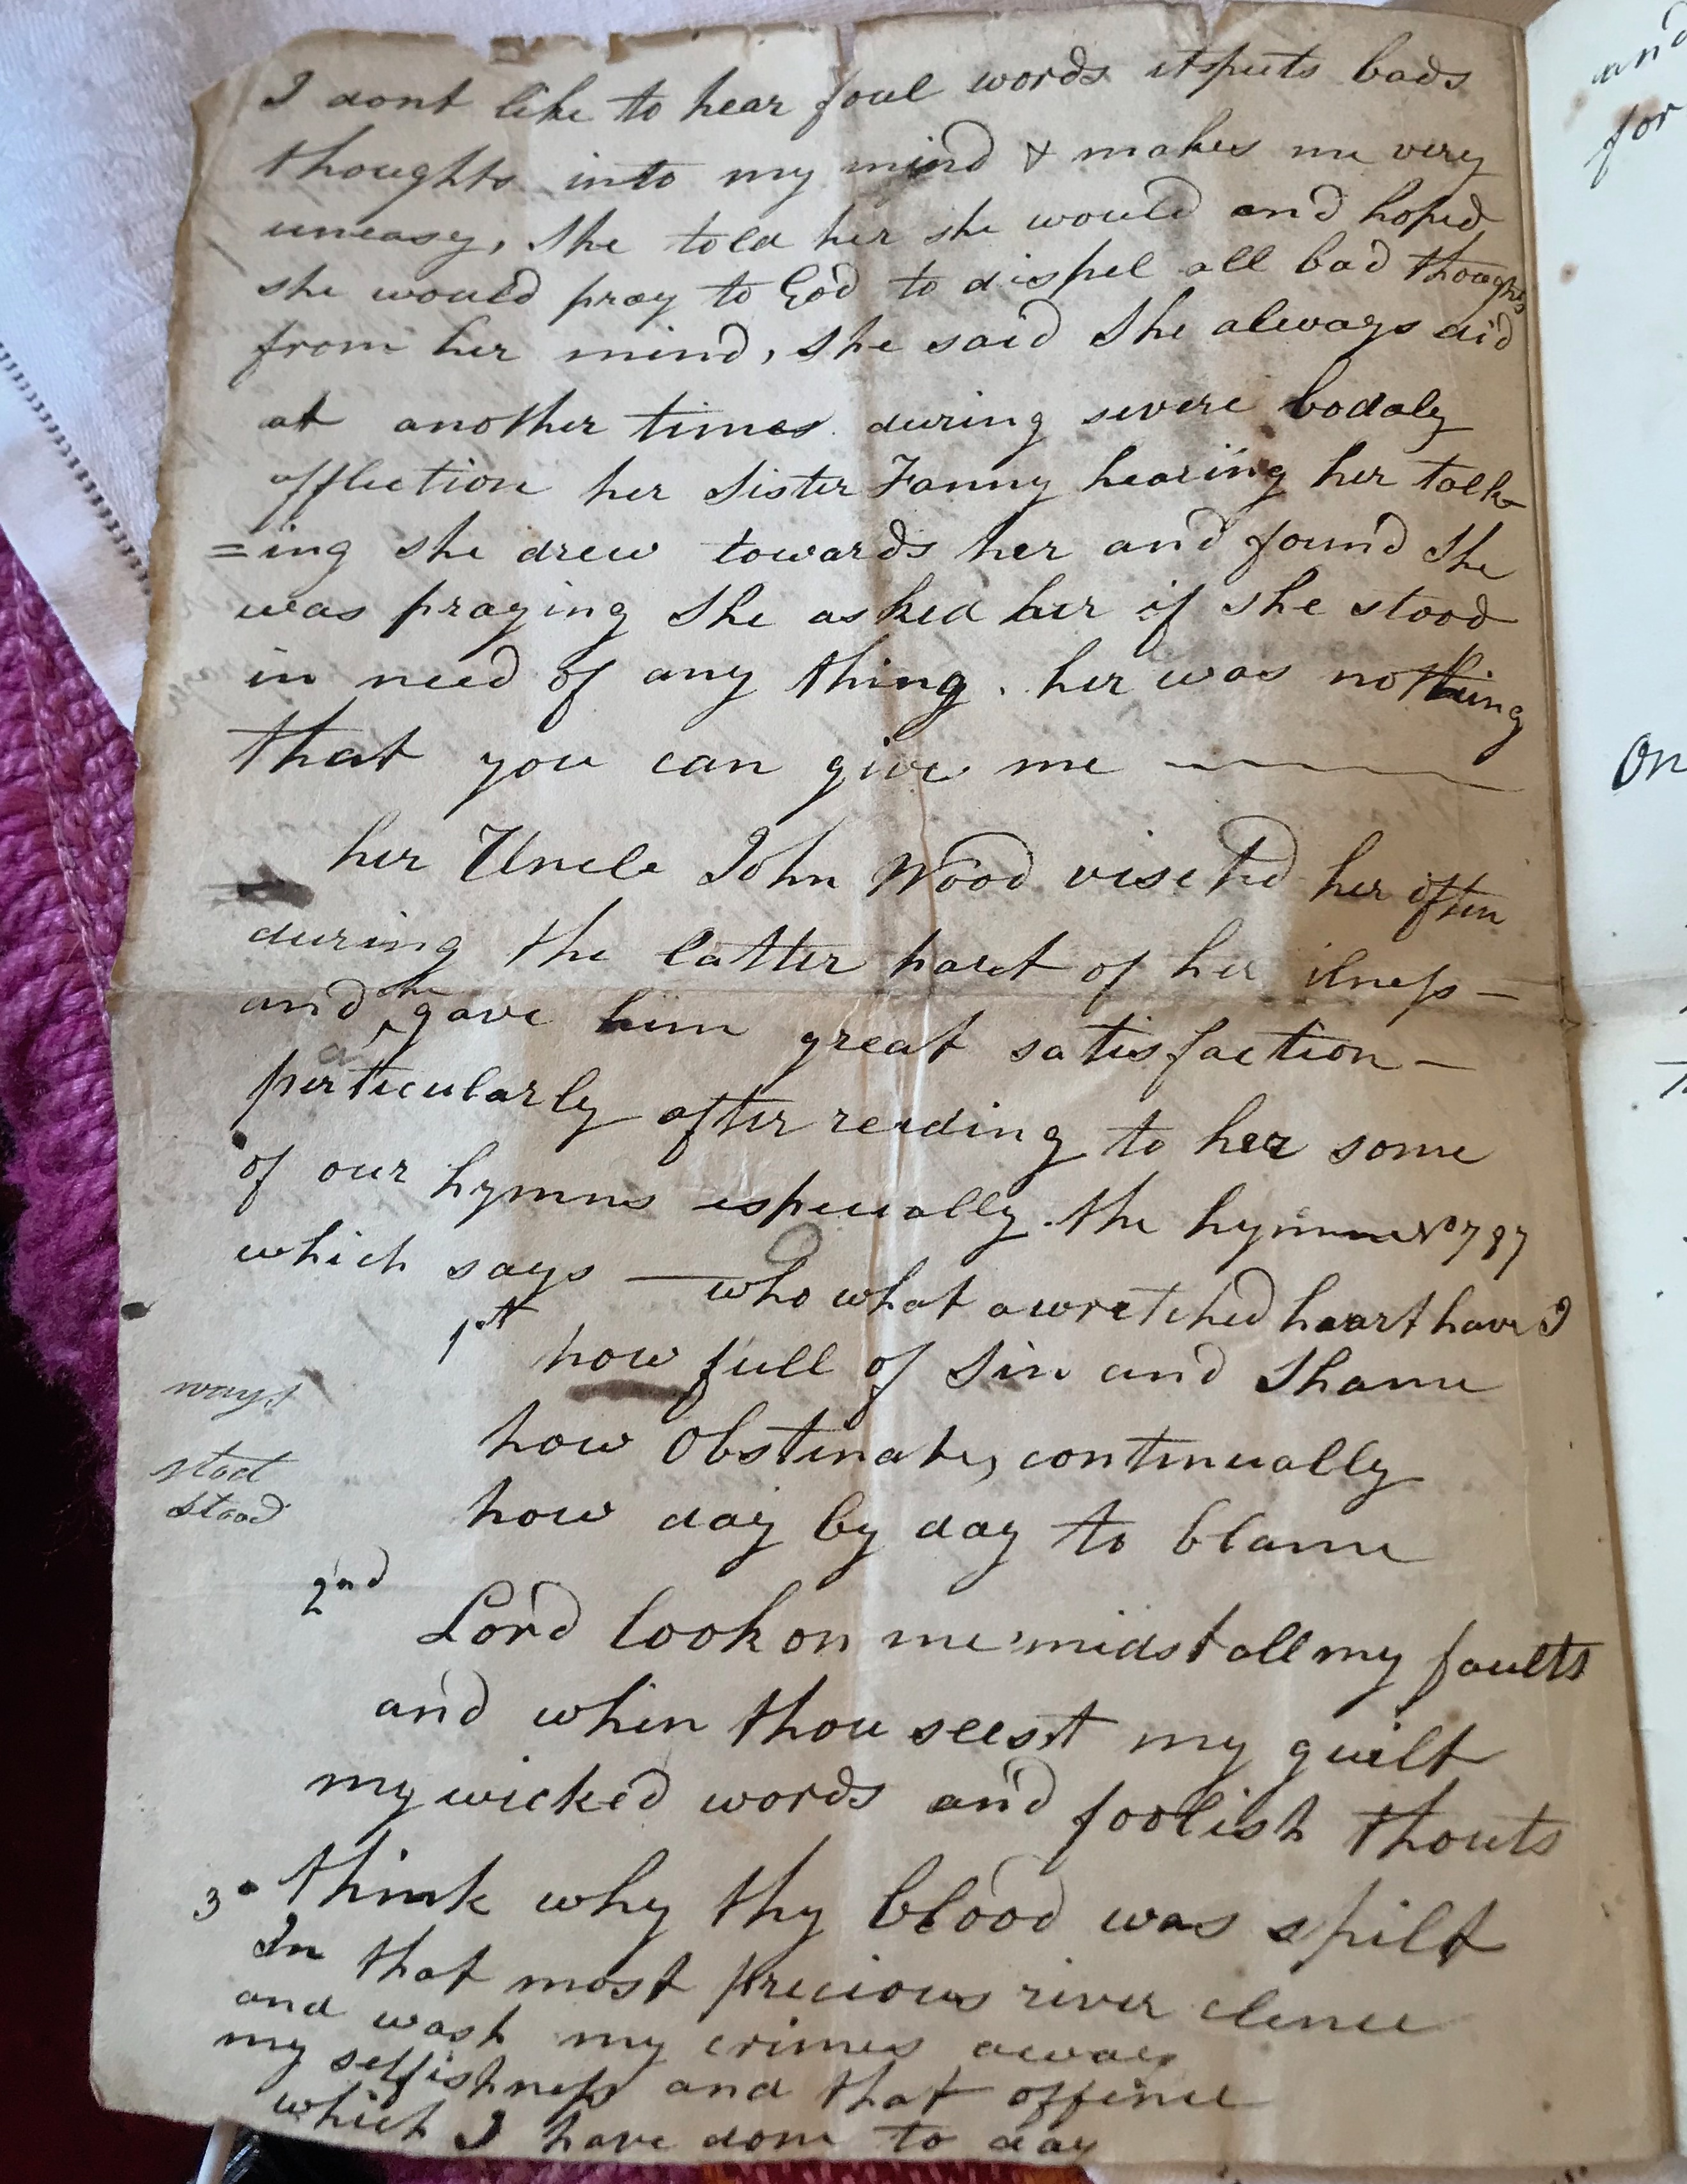 I dont like to hear foul words it puts bads
thoughts into my mind & makes me very
uneasy, She told her she would and hoped
she would pray to God to dispel all bad thoughts
from her mind, she said She always did
at another times during severe bodaly
afflection her Sister Fanny hearing her talk
=ing she drew towards her and found She
was praying She asked her if she stood
in need of any thing. her was nothing
that you can give me
her Uncle John Wood viseted her often
during the latter part of her ilness -
and she gave him great satisfaction -
particularly after reading to her some
of our hymns especially the hymn No 787
which says — who what a wretched heart have I
1st how full of Sin and Shame
ways
how Obstinate, continually
stod
stood
how day by day to blame
2nd
Lord look on me 'midst all my faults
and when thou seest my guilt
my wicked words and foolish thouts
think why thy blood was spilt
3 In that most precious river clence
and wash my crimes away
my selfishness and that offence
which I have done to day
and
for
On